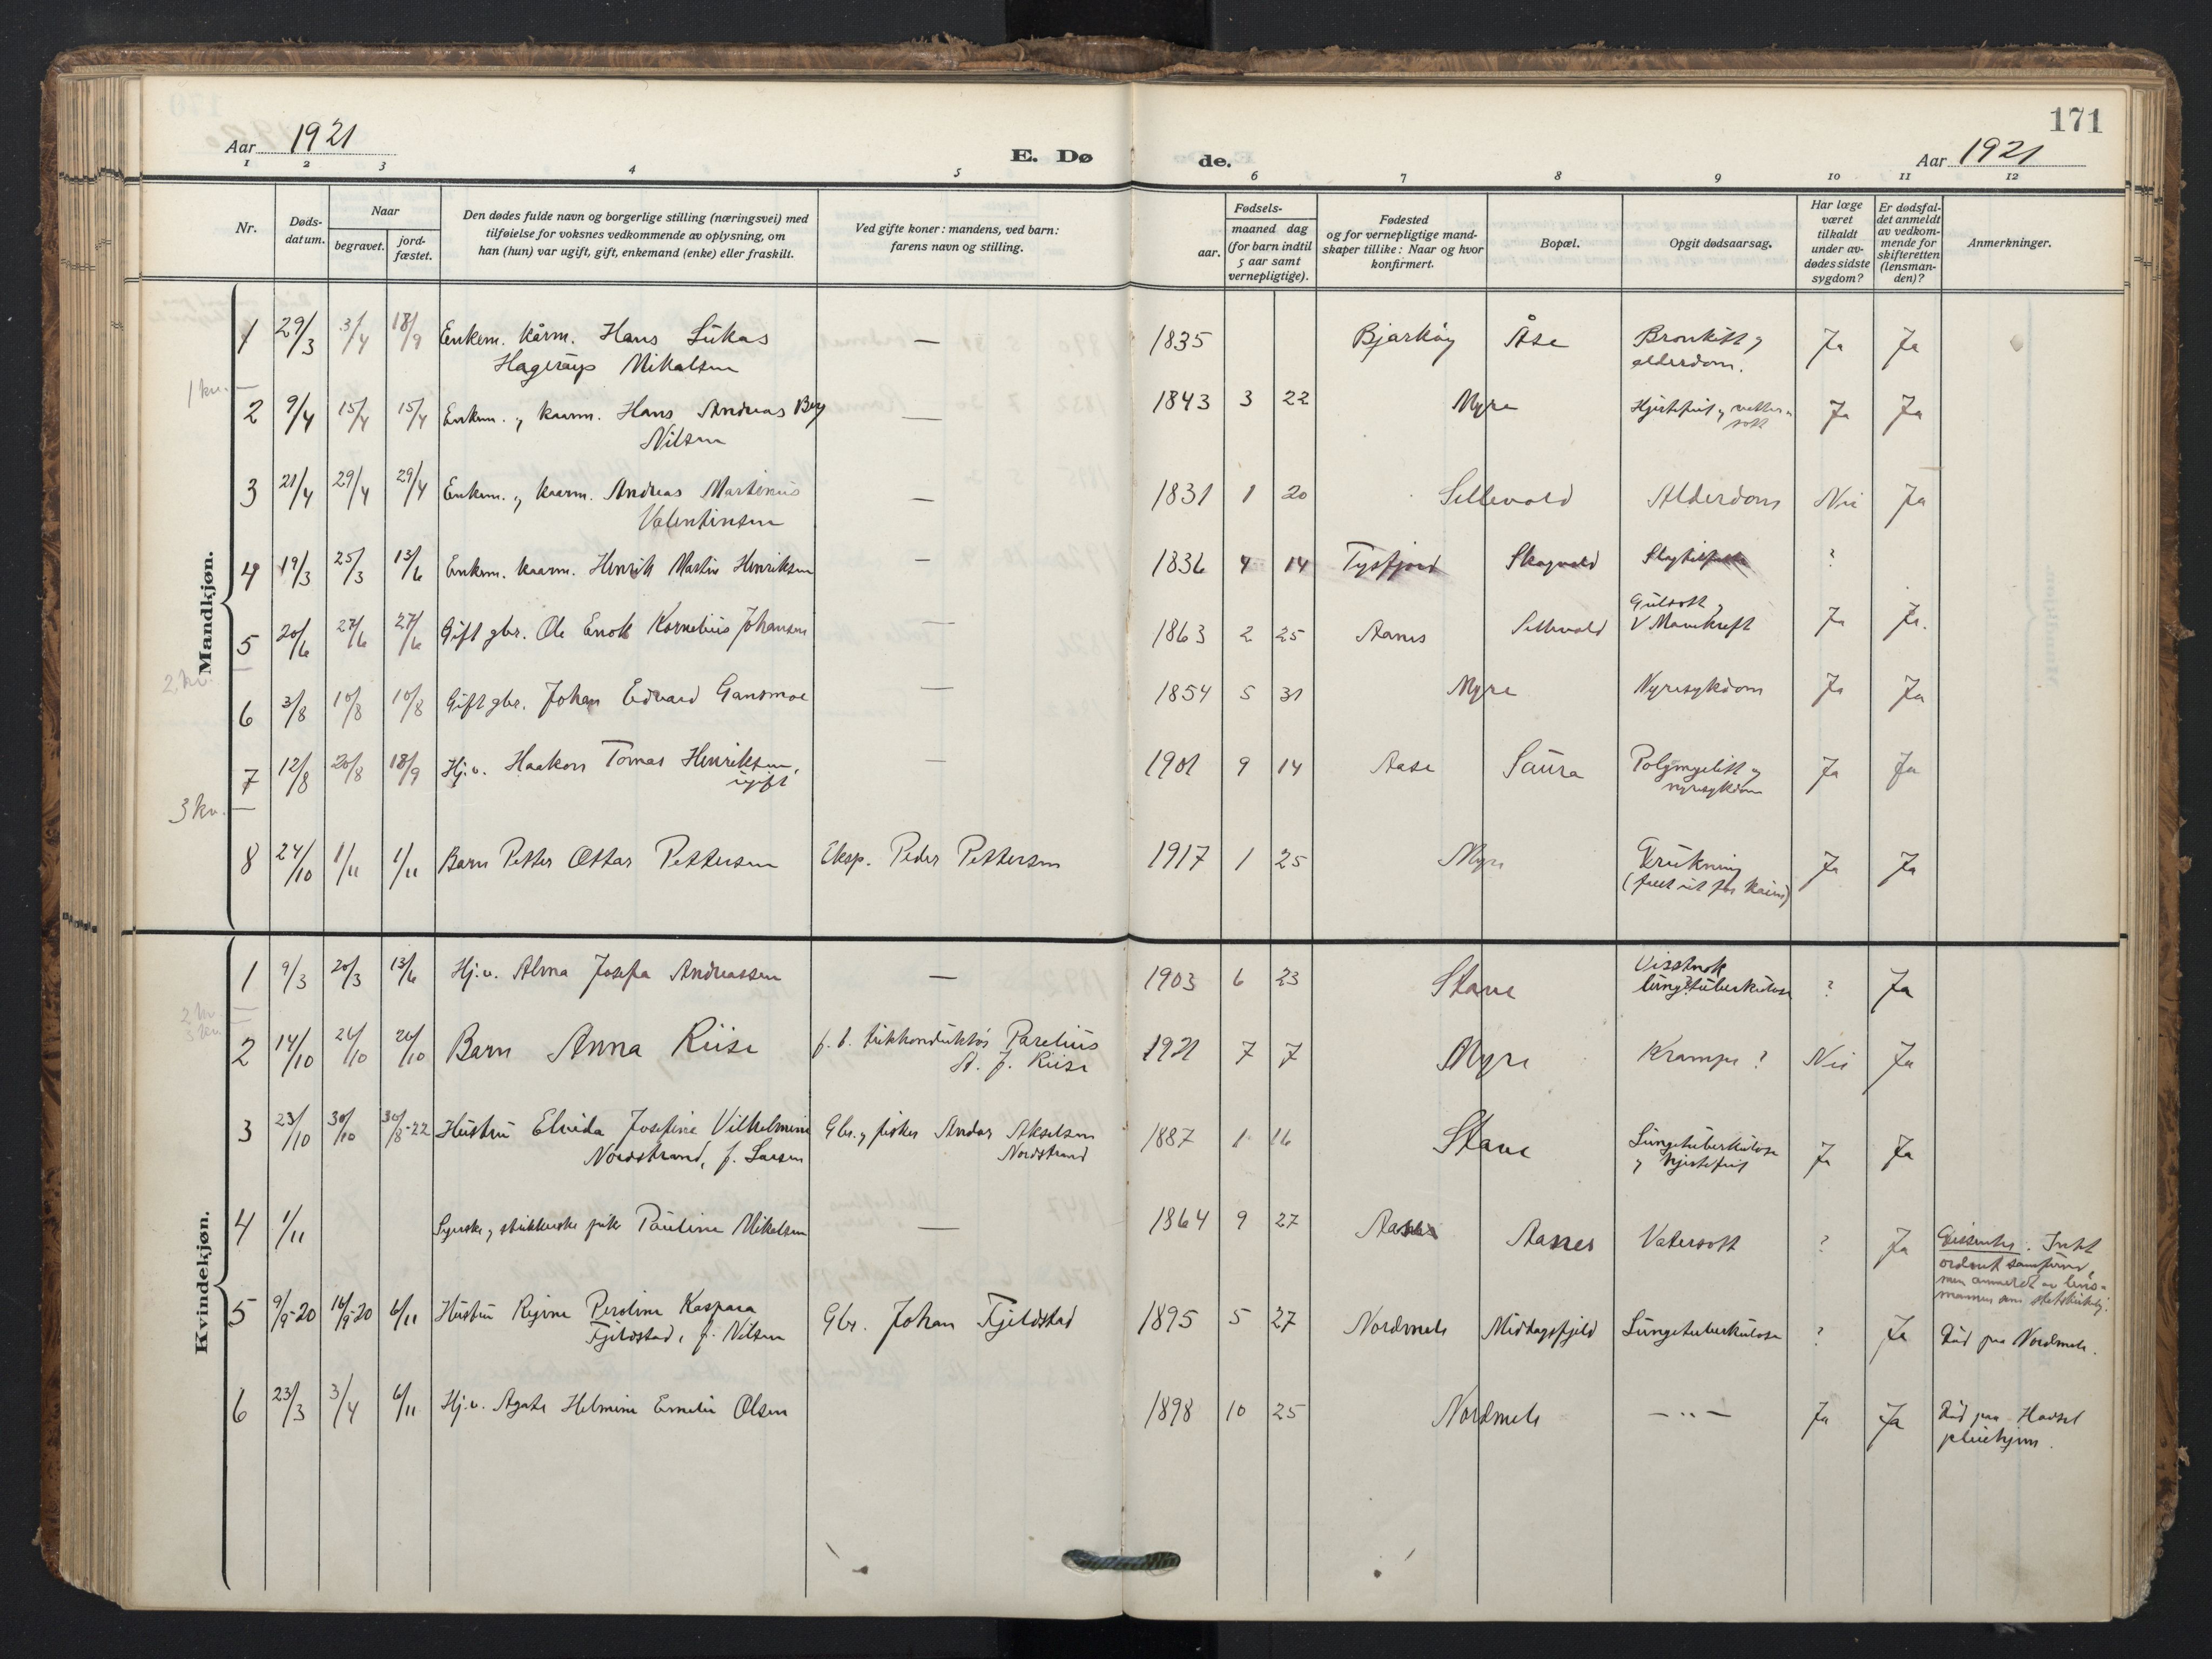 171
Aar 1921
E. Døde.
Aar 1921
1 2 3 4 5 6 7 8 9 10 11 12
Nr.
Døds-datum.
Naar
begravet.
jord-fæstet.
Den dødes fulde navn og borgerlige stilling (næringsvei) med
tilføielse for voksnes vedkommende av oplysning, om
han (hun) var ugift, gift, enkemand (enke) eller fraskilt.
Ved gifte koner: mandens, ved barn:
farens navn og stilling.
Fødsels-
aar.
maaned dag
(for barn indtil
5 aar samt
vernepligtige).
Fødested
og for vernepligtige mand-
skaper tillike: Naar og hvor
konfirmert.
Bopæl.
Opgit dødsaarsag.
Har læge
været
tilkaldt
under av-
dødes sidste
sygdom?
Er dødsfal-
det anmeldt
av vedkom-
mende for
skifteretten
(lensman-
den)?
Anmerkninger.
Mandkjøn.
1 29/3 3/4 18/9 Enkem. kårm. Hans Lukas — 1835 Bjarkøy Åse Bronkitt og Ja Ja
Hagerup Mikalsen alderdom.
1 kv.
2 9/4 15/4 15/4 Enkem. og kaarm. Hans Andreas Berg — 1843 3 22 Myre Hjertefeil og vatter- Ja Ja
Nilsen sott
3 21/4 29/4 29/4 Enkem. og kaarm. Andreas Martinus — 1831 1 20 Sellevold Alderdom Nei Ja
Valentinsen
4 19/3 25/3 13/6 Enkem. kaarm. Henrik Martin Henriksen — 1836 4 14 Tysfjord Skogvold ?
5 20/6 27/6 27/6 Gift gbr. Ole Enok Kornelius Johansen — 1863 2 25 Aanes Sellevold Gulsott og Ja Ja.
V Mavekreft
2. kv.
6 3/8 10/8 10/8 Gift gbr. Johan Edvard Gansmoe — 1854 5 31 Myre Nyresykdom Ja Ja
7 12/8 20/8 18/9 Hj.v. Haakon Tomas Henriksen, — 1901 9 14 Aase Saura Polymyelitt og Ja Ja
ugift nyresykdom
3 kv.
8 24/10 1/11 1/11 Barn Petter Ottar Pettersen Eksp. Peder Pettersen 1917 1 25 Myre Drukning Ja Ja
(falt ut for kaien)
Kvindekjøn.
1 9/3 20/3 13/6 Hj.v. Alma Josefa Andreassen — 1903 6 23 Stave Visstnok ? Ja
lungetuberkulose
2 kv.
3 kv.
2 14/10 26/10 26/10 Barn Anna Riise f. b. trikkonduktør Parelius 1921 7 7 Myre Krampe? Nei Ja
A. J. Riise
3 23/10 30/10 30/8-22 Hustru Elvida Josefine Vilhelmine Gbr. og fisker Andor Akselsen 1887 1 16 Stave Lungetuberkulose Ja Ja
Nordstrand, f. Larsen Nordstrand og hjertefeil
4 1/11 Syerske og strikkerske pike Pauline Mikalsen — 1864 9 27 Aanes Vatersott ? Ja Dissenter. Intet
ordnet samfund,
men anmeldt av lens-
mannen som statskirkelig.
5 9/9-20 16/9-20 6/11 Hustru Regine Peroline Kaspara Gbr. Johan Fjeldstad 1895 5 27 Nordmele Middagsfjeld Lungetuberkulose ? Ja Død paa Nordmele.
Fjeldstad, f. Nilsen
6 23/3 3/4 6/11 Hj.v. Agate Helmine Emelie Olsen 1898 10 25 Nordmele —"— Ja Ja Død paa Hadsel
pleiehjem.